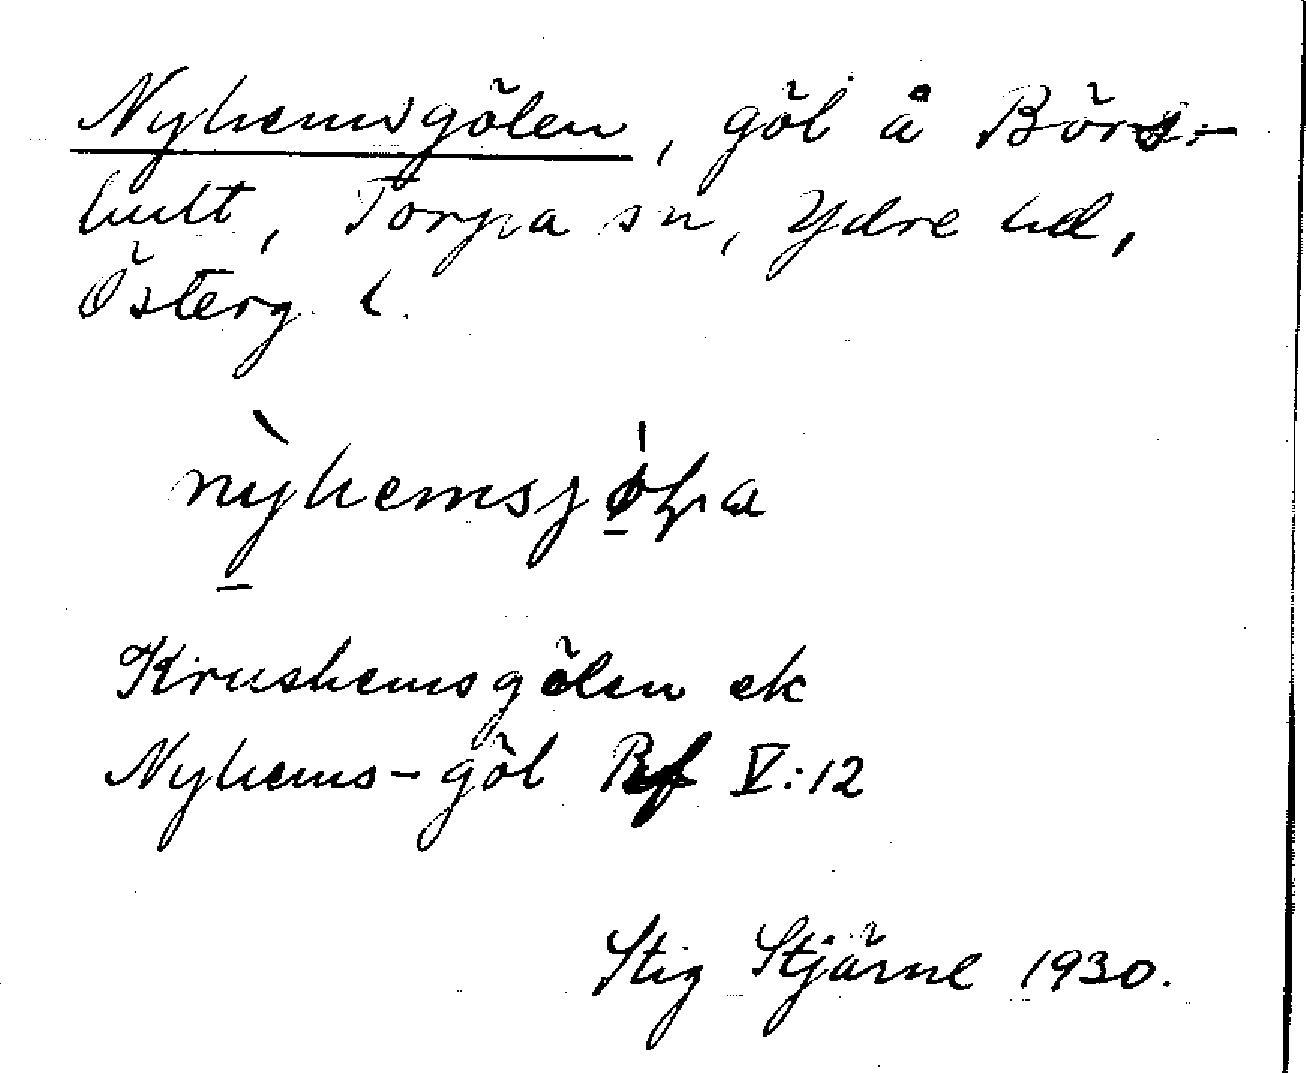 Nyhemsgölen, göl å Börs-
hult, Torpa sn, Ydre hd,
Österg. l.
Krushemsgölen ek
Nyhems-göl Rf V:12
Stig Stjärne 1930.